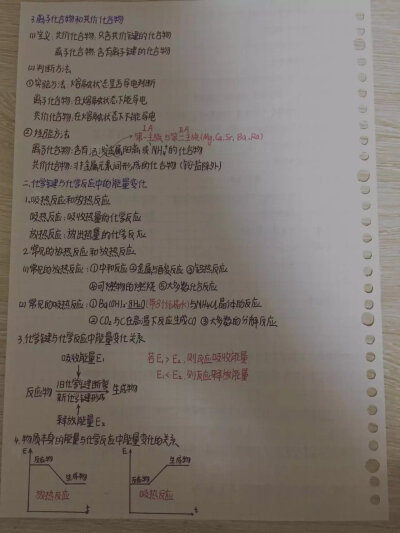 3.离子化合物和共价化合物
(1)定义:共价化合物:只含共价键的化合物
离子化合物:含有离子键的化合物
(2)判断方法
①实验方法:熔融状态是否导电判断
离子化合物:在熔融状态下能导电
共价化合物:在熔融状态下不能导电
②经验方法
ⅠA ⅡA
第一主族与第二主族(Mg,Ca,Sr,Ba,Ra)
离子化合物:含有活泼金属阳离子或NH₄⁺的化合物
共价化合物:非金属元素间形成的化合物(铵盐除外)
二.化学键与化学反应中的能量变化
1.吸热反应和放热反应
吸热反应:吸收热量的化学反应
放热反应:放出热量的化学反应
2.常见的放热反应和放热反应
(1)常见的放热反应:①中和反应②金属与酸反应③铝热反应
④可燃物的燃烧⑤大多数化合反应
(2)常见的吸热反应:①Ba(OH)₂·8H₂O(带8个结晶水)与NH₄Cl晶体的反应
②CO₂与C在高温下反应生成CO ③大多数的分解反应
3.化学键与化学反应中能量变化关系
吸收能量E₁ 若E₁>E₂,则反应吸收能量
反应物 旧化学键断裂 生成物 E₁<E₂,则反应释放能量
新化学键形成
释放能量E₂
4.物质本身的能量与化学反应中能量变化的关系
E E
反应物 生成物
生成物 反应物
放热反应 吸热反应
t t